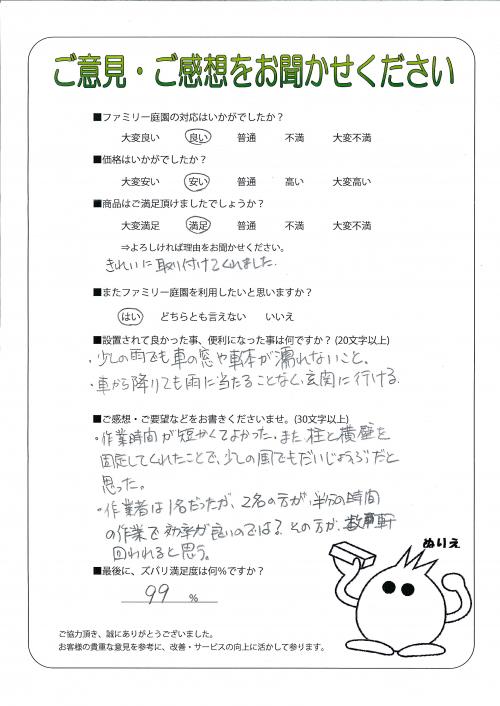 ご意見・ご感想をお聞かせください
■ファミリー庭園の対応はいかがでしたか？
大変良い 良い 普通 不満 大変不満
■価格はいかがでしたか？
大変安い 安い 普通 高い 大変高い
■商品はご満足頂けましたでしょうか？
大変満足 満足 普通 不満 大変不満
⇒よろしければ理由をお聞かせください。
きれいに取り付けてくれました.
■またファミリー庭園を利用したいと思いますか？
はい どちらとも言えない いいえ
■設置されて良かった事、便利になった事は何ですか？(20文字以上)
・少しの雨でも車の窓や車体が濡れないこと。
・車から降りても雨に当たることなく、玄関に行ける.
■ご感想・ご要望などをお書きくださいませ。(30文字以上)
・作業時間が短かくてよかった.また柱と横壁を
固定してくれたことで、少しの風でもだいじょうぶだと
思った。
・作業者は1名だったが、2名の方が、半分の時間
の作業で効率が良いのでは？その方が、数軒
回われると思う。
ぬりえ
■最後に、ズバリ満足度は何％ですか？
99 %
ご協力頂き、誠にありがとうございました。
お客様の貴重な意見を参考に、改善・サービスの向上に活かして参ります。